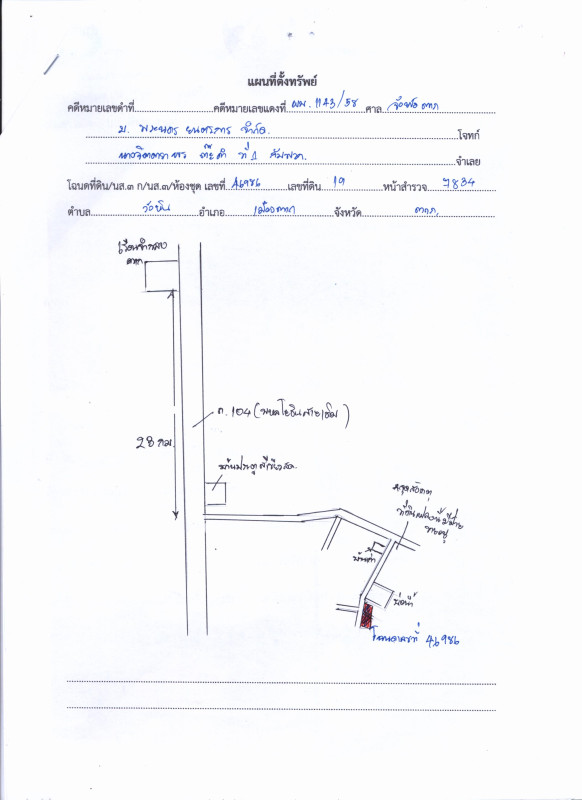 แผนที่ตั้งทรัพย์
คดีหมายเลขดำที่ คดีหมายเลขแดงที่ ผบ. 1143/58 ศาล จังหวัดตาก
บ. พระนคร ยนตรการ จำกัด. โจทก์
ที่ 1 กับพวก. จำเลย
โฉนดที่ดิน/นส.๓ ก/นส.๓/ห้องชุด เลขที่ 46986 เลขที่ดิน 19 หน้าสำรวจ 7834
ตำบล วังหิน อำเภอ เมืองตาก จังหวัด ตาก.
เรือนจำกลาง
ตาก
ถ. 104 (พหลโยธินสายเดิม)
28 กม.
ที่ดินแปลงนี้มีป้าย
ขายอยู่
บ่อน้ำ
โฉนดเลขที่ 46986